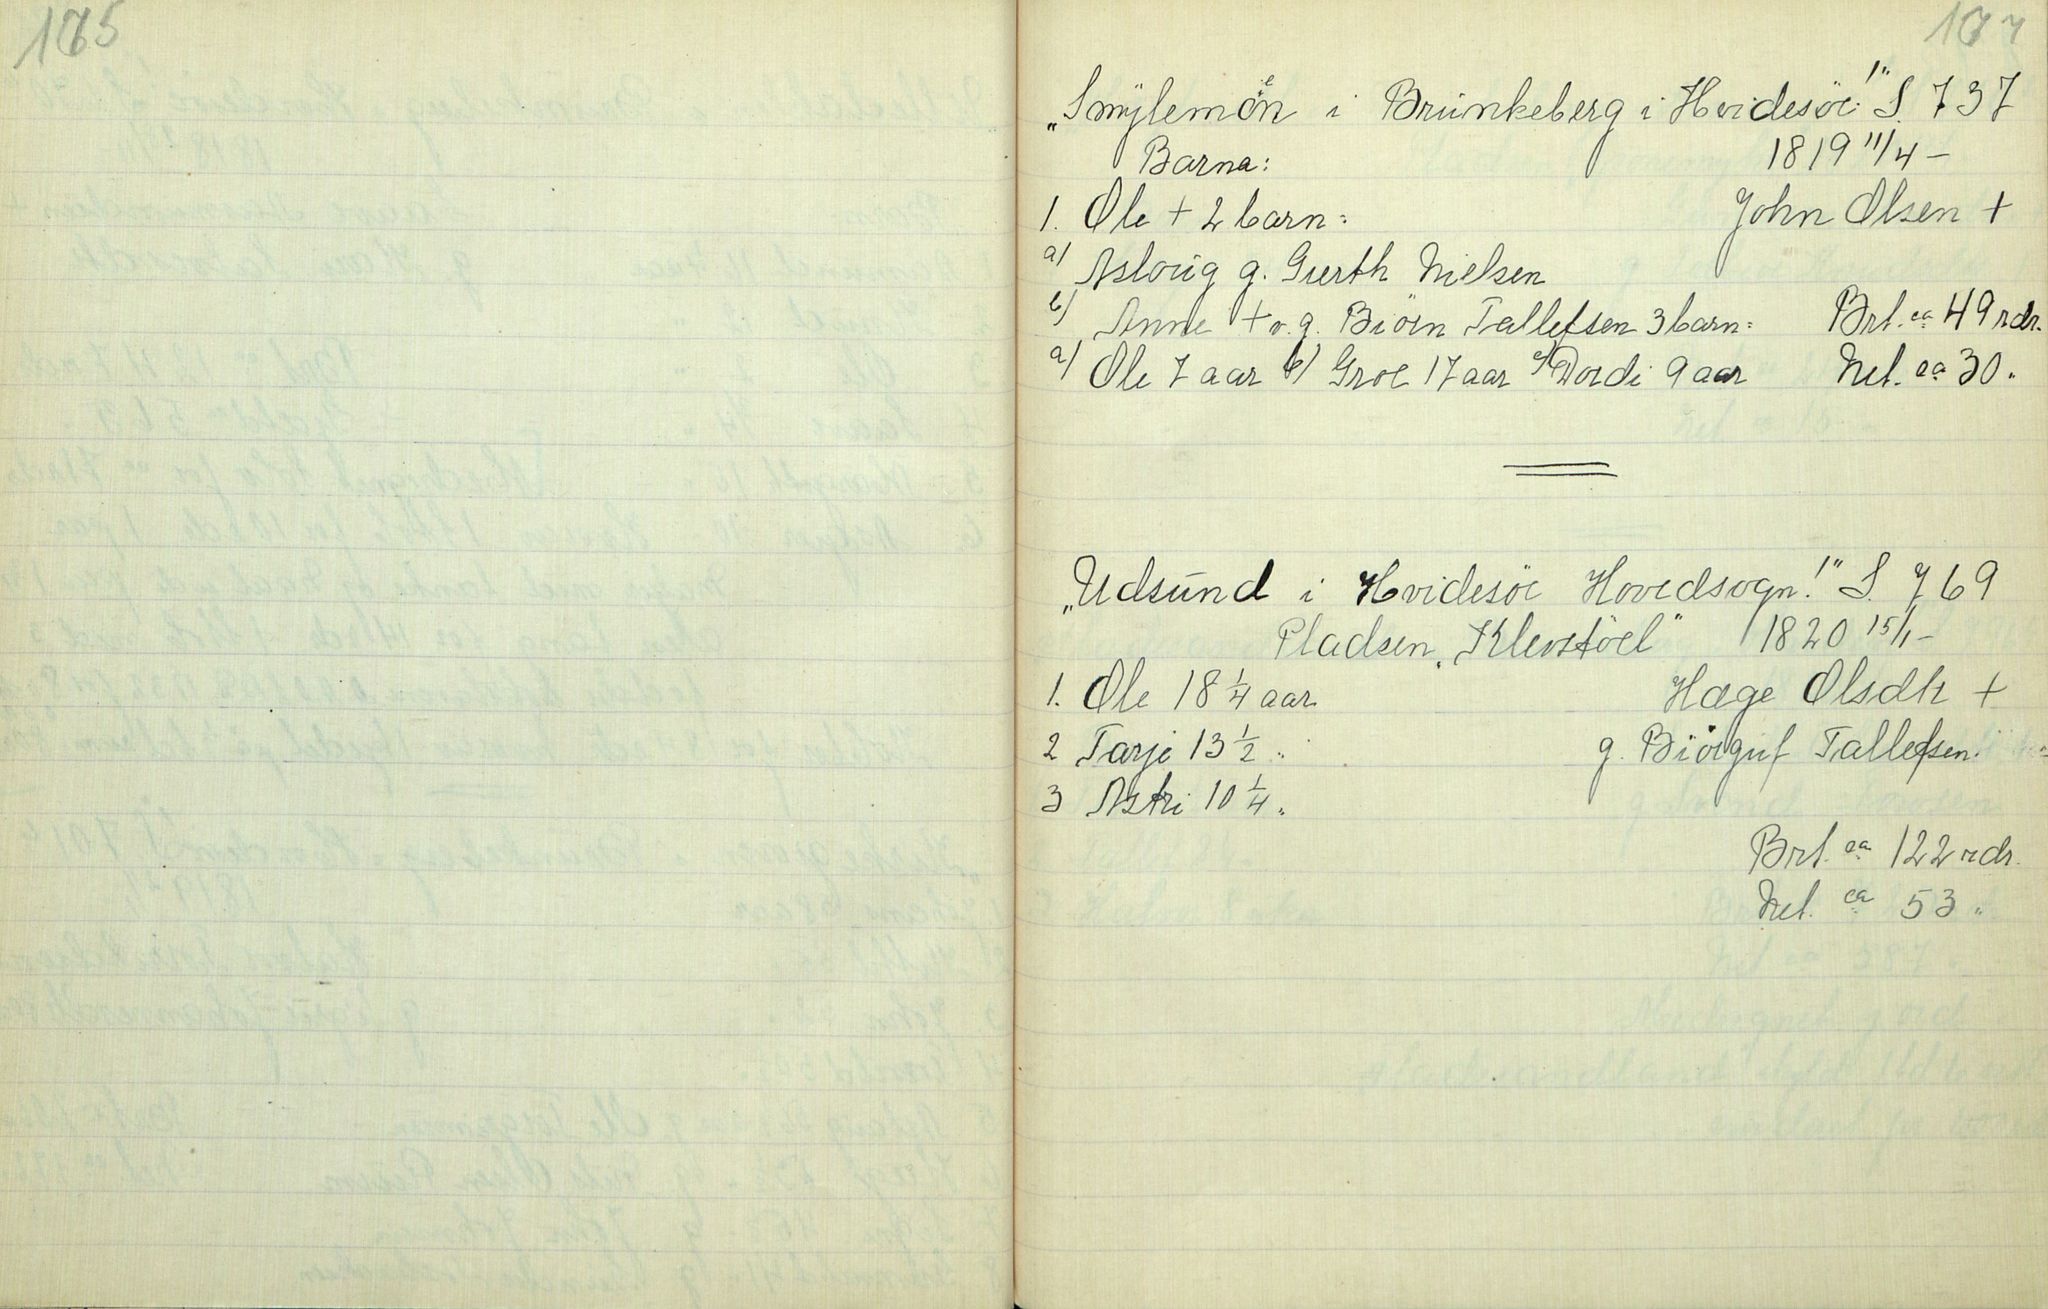 165
„Smylemoen i Brunkeberg i Hvidesöe!" S. 737
Barna: 1819 11/4 –
1. Ole + 2 barn: John Olsen +
a) Asloug g. Gierth Nielsen
b) Anne + v. g. Biörn Tallefsen 3 barn: Brt. ca 49 rdr.
a) Ole 7 aar b) Groe 17 aar c) Dordi 9 aar Net. ca 30 "
„Udsund i Hvidesöe Hovedsogn!" S. 769
Pladsen „Klevstöel" 1820 15/1 –
1. Ole 18 1/4 aar Hæge Olsdtr +
2 Tarje 13 1/2 " g. Biörguf Tallefsen.
3 Astri 10 1/4 "
Brt. ca 122 rdr.
Net. ca 53 "